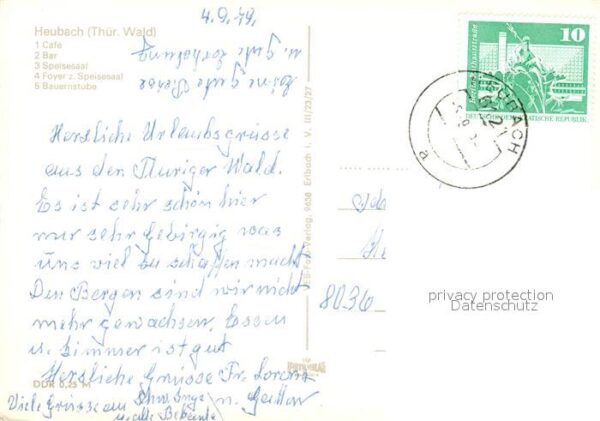 4.9.79.
Heubach (Thür. Wald)
1 Cafe
2 Bar
3 Speisesaal
4 Foyer z. Speisesaal
5 Bauernstube
u. gute Erholung
gute
Herzliche Urlaubsgrüsse
aus den Thuriger Wald.
Es ist sehr schön hier
nur sehr Gebirgig was
uns viel zu schaffen macht
Den Bergen sind wir nicht
mehr gewachsen. Essen
u. Zimmer ist gut
Herzliche Grüsse Fr. Lorenz
u. Gatten
Viele Grüsse an
u. alle Bekannte
DDR 0,25 M
Verlag, 9658 Erlbach i. V. III/23/27
10
DEUTSCHE DEMOKRATISCHE REPUBLIK
a
8036
privacy protection
Datenschutz